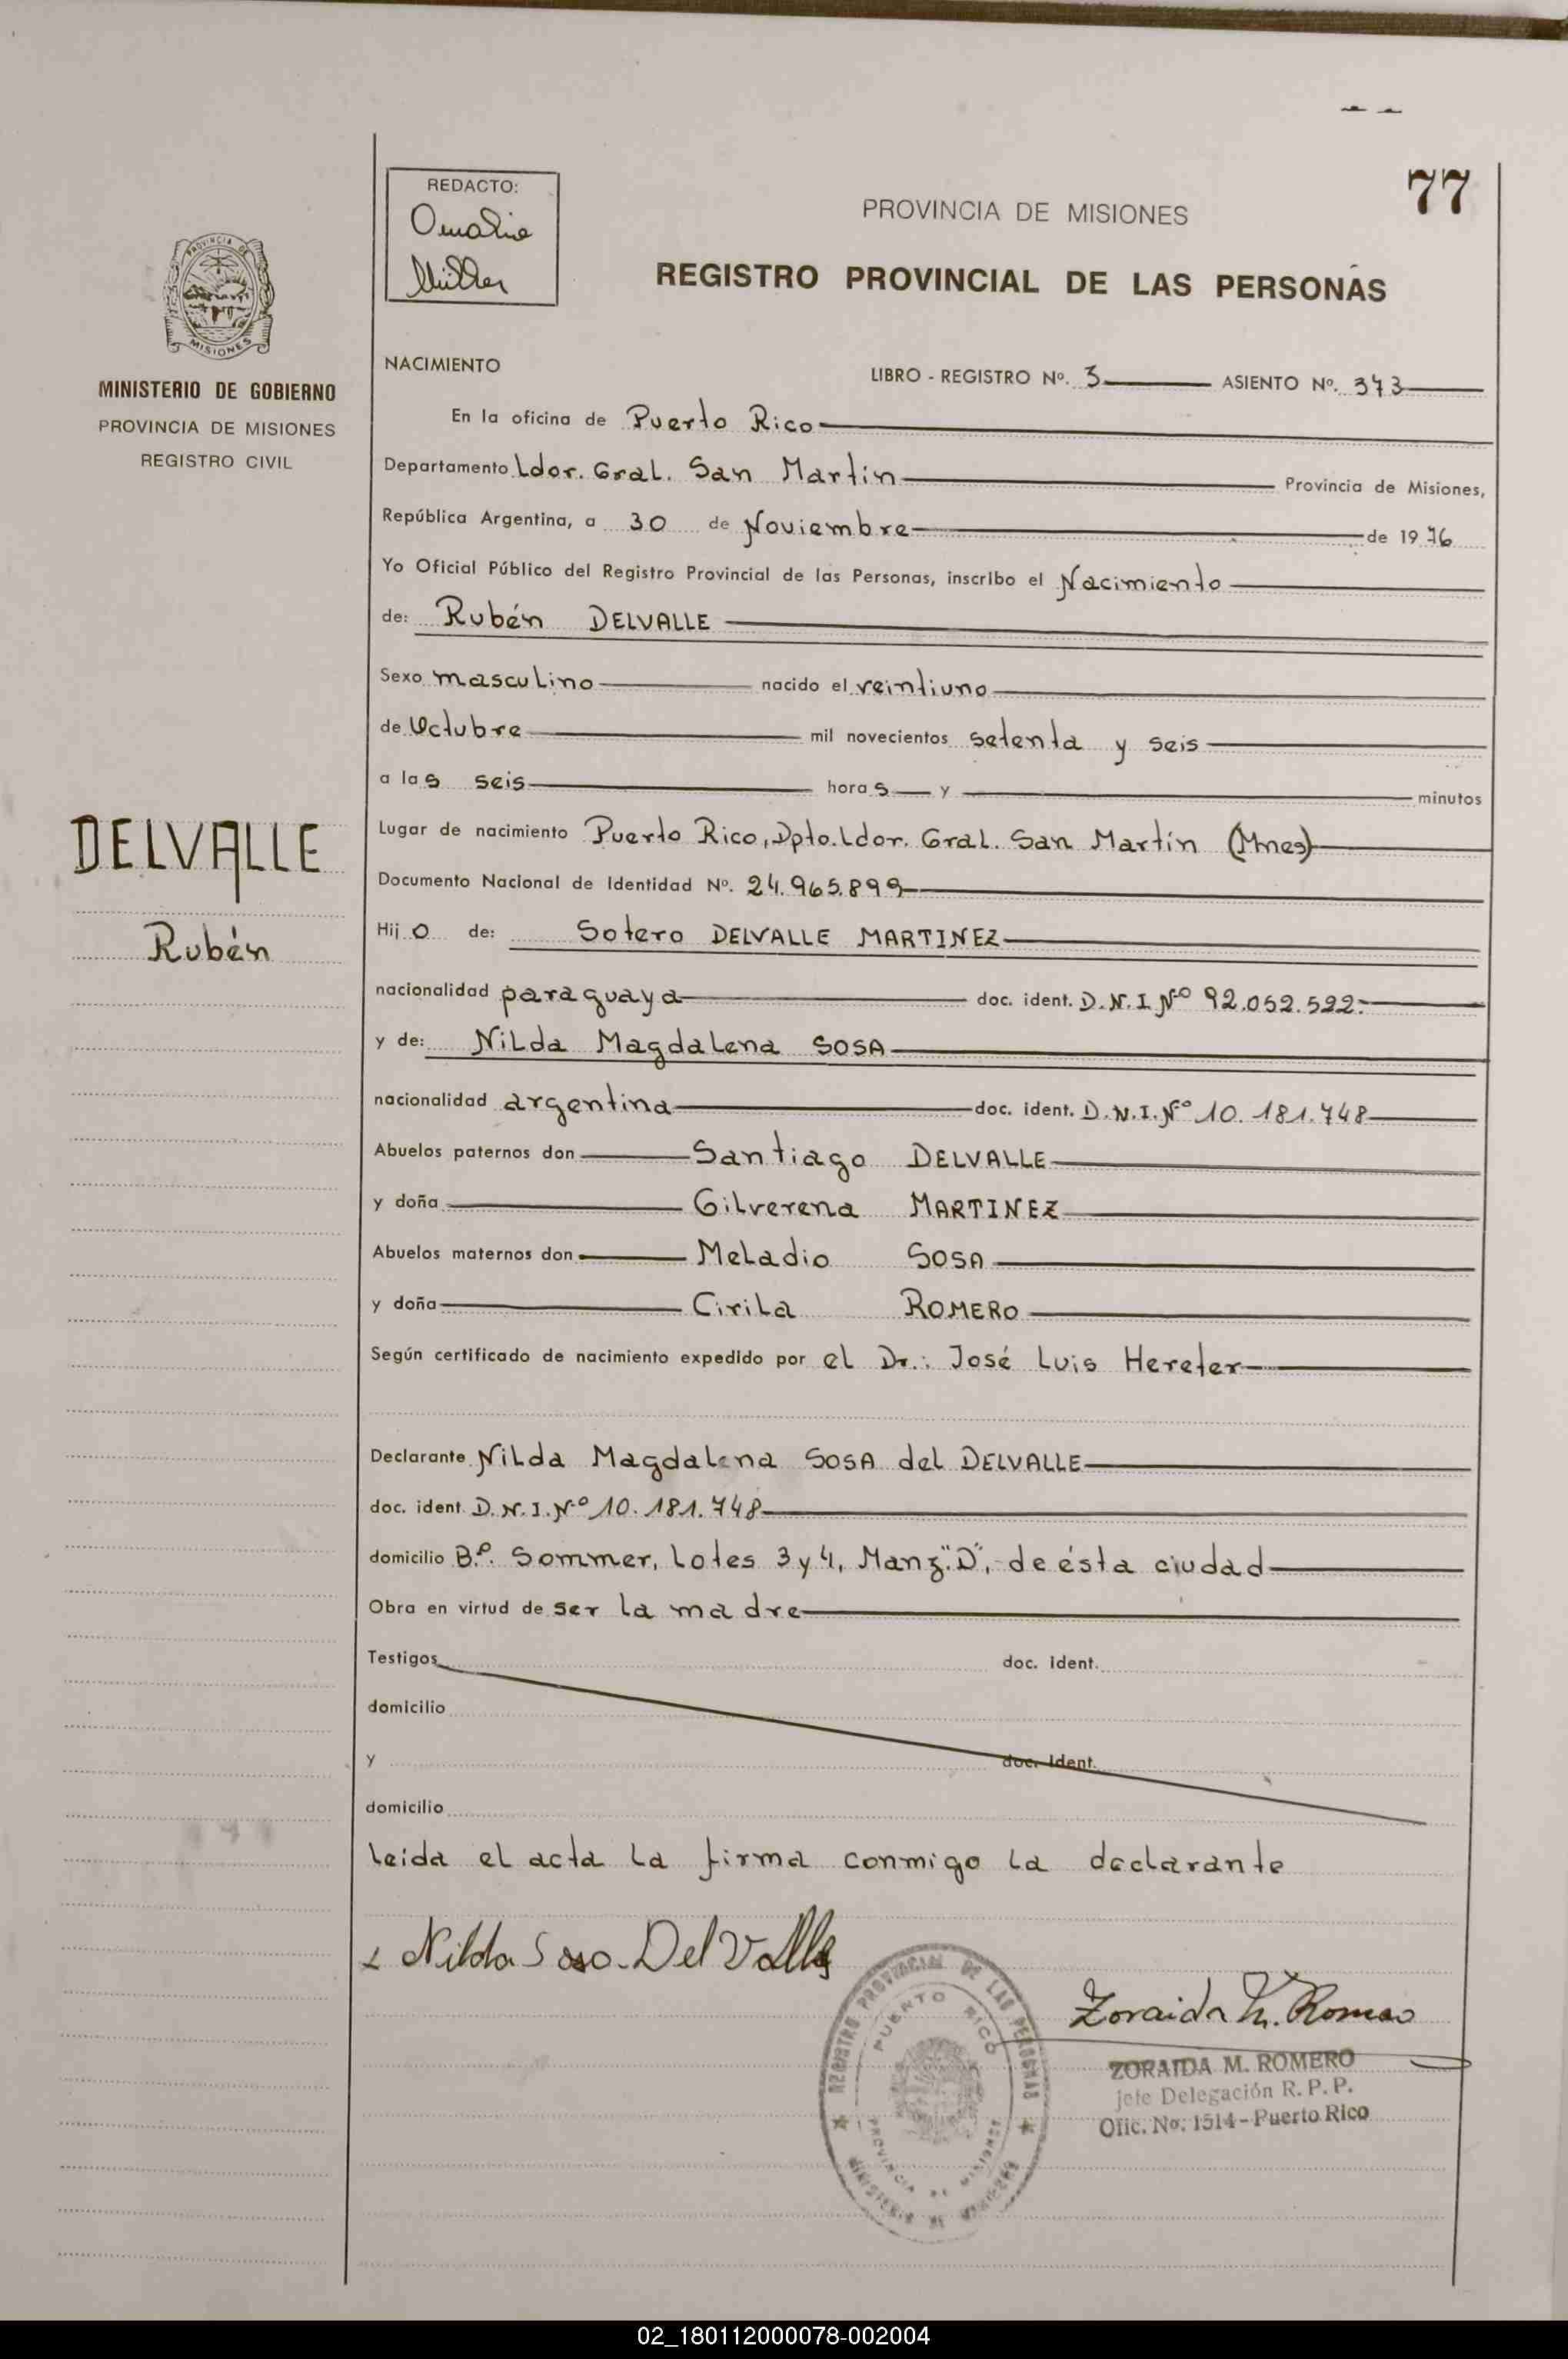 77
REDACTO:
Müller
PROVINCIA DE MISIONES
REGISTRO PROVINCIAL DE LAS PERSONAS
PROVINCIA DE
MISIONES
MINISTERIO DE GOBIERNO
PROVINCIA DE MISIONES
REGISTRO CIVIL
DELVALLE
Rubén
NACIMIENTO LIBRO - REGISTRO Nº. 3 ASIENTO Nº. 373
En la oficina de Puerto Rico
Departamento Ldor. Gral. San Martín Provincia de Misiones,
República Argentina, a 30 de Noviembre de 1976
Yo Oficial Público del Registro Provincial de las Personas, inscribo el Nacimiento
de: Rubén DELVALLE
Sexo masculino nacido el veintiuno
de Octubre mil novecientos setenta y seis
a las seis horas y minutos
Lugar de nacimiento Puerto Rico, Dpto. Ldor. Gral. San Martín (Mnes)
Documento Nacional de Identidad Nº. 24.965.899
Hijo de: Sotero DELVALLE MARTINEZ
nacionalidad paraguaya doc. ident. D.N.I Nº 92.052.522.
y de: Nilda Magdalena SOSA
nacionalidad argentina doc. ident. D.N.I. Nº 10.181.748
Abuelos paternos don Santiago DELVALLE
y doña Gilverena MARTINEZ
Abuelos maternos don Meladio SOSA
y doña Cirila ROMERO
Según certificado de nacimiento expedido por el Dr.: José Luis Hereter
Declarante Nilda Magdalena SOSA del DELVALLE
doc. ident. D.N.I. Nº 10.181.748
domicilio Bº. Sommer, Lotes 3 y 4, Manz "D", de ésta ciudad
Obra en virtud de ser la madre
Testigos doc. ident.
domicilio
y doc. ident.
domicilio
Leída el acta la firma conmigo la declarante
Nilda Sosa. Del Valle
Zoraida M. Romero
REGISTRO PROVINCIAL DE LAS PERSONAS
PUERTO RICO
PROVINCIA DE MISIONES
MINISTERIO DE GOBIERNO
ZORAIDA M. ROMERO
Jefe Delegación R. P. P.
Ofic. No. 1514 - Puerto Rico
02_180112000078-002004